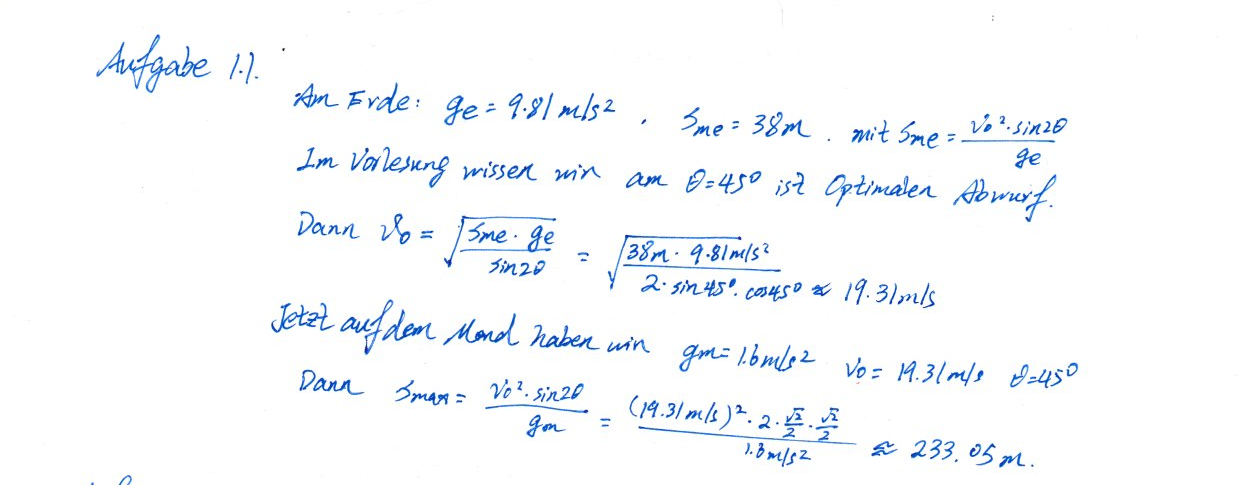 Aufgabe 1.1.
Am Erde: ge = 9.81 m/s² , Sme = 38m . mit Sme = V₀²·sin2θ / ge
Im Vorlesung wissen wir am θ=45° ist Optimalen Abwurf.
Dann V₀ = √(Sme · ge / sin2θ) = √(38m · 9.81m/s² / 2·sin45°·cos45°) ≈ 19.31m/s
Jetzt auf dem Mond haben wir gm = 1.6m/s² V₀ = 19.31m/s θ=45°
Dann Smax = V₀²·sin2θ / gm = (19.31m/s)²·2·√2/2·√2/2 / 1.6m/s² ≈ 233.05m.